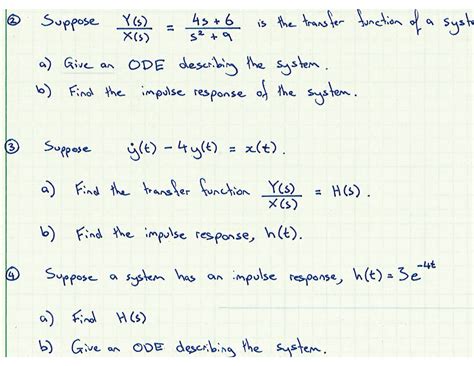 ② Suppose Y(s)/X(s) = 4s + 6 / s² + 9 is the transfer function of a syste
a) Give an ODE describing the system.
b) Find the impulse response of the system.
③ Suppose ẏ(t) - 4y(t) = x(t).
a) Find the transfer function Y(s)/X(s) = H(s).
b) Find the impulse response, h(t).
④ Suppose a system has an impulse response, h(t) = 3e^-4t
a) Find H(s)
b) Give an ODE describing the system.